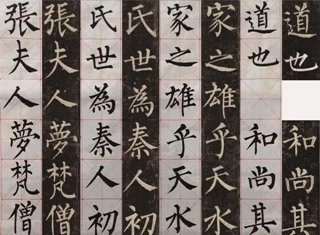 道也和尚其
道也和尚其
家之雄乎天水
家之雄乎天水
氏世為秦人初
氏世為秦人初
張夫人夢梵僧
張夫人夢梵僧